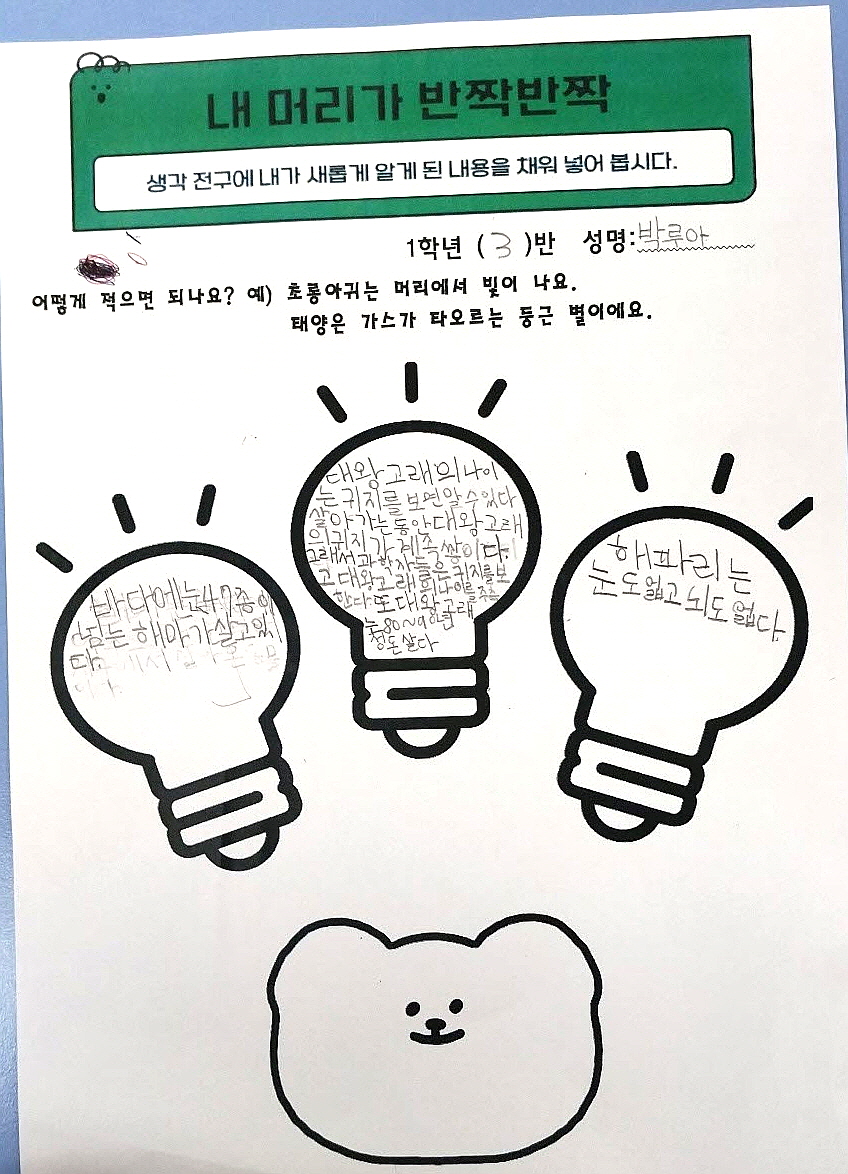 내 머리가 반짝반짝
생각 전구에 내가 새롭게 알게 된 내용을 채워 넣어 봅시다.
1학년 (3)반 성명:박루아
어떻게 적으면 되나요? 예) 초롱아귀는 머리에서 빛이 나요.
태양은 가스가 타오르는 둥근 별이에요.
바다에는47종이
넘는 해마가살고있
다
대왕고래의나이
는귀지를보면알수있다
살아가는동안대왕고래
의귀지가계속쌓이다.
그래서과학자들은귀지를보
고대왕고래의나이를추측
한다또대왕고래
는80~90년
정돈살다
해파리는
눈도없고뇌도없다